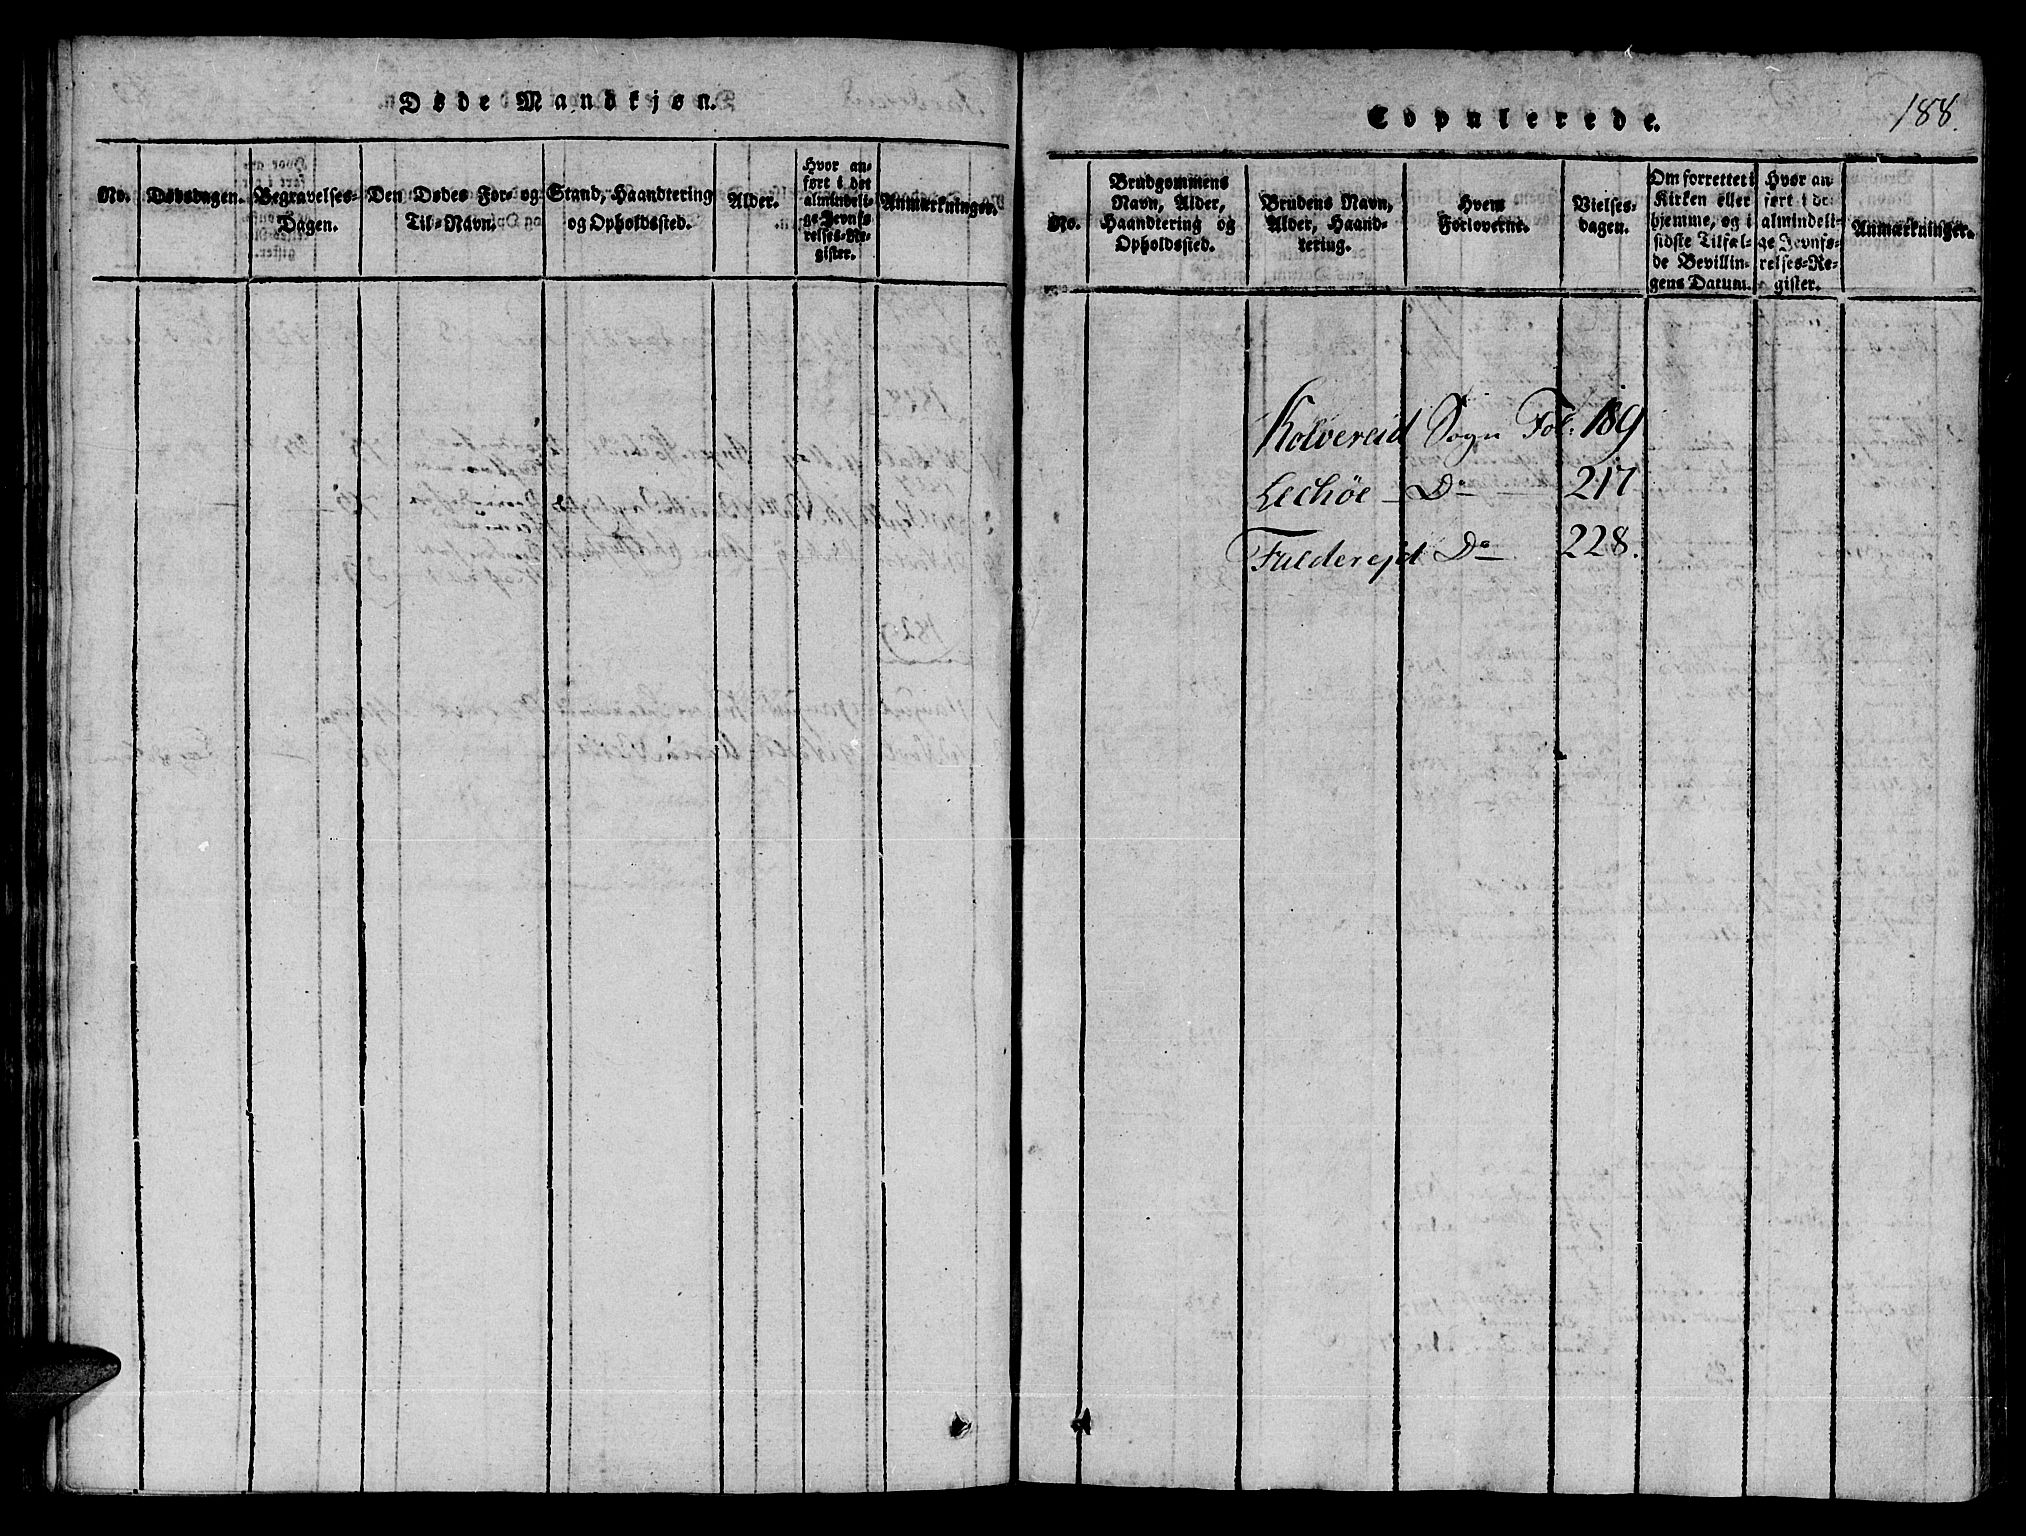 Døde Mandkjøn.
No.
Dødsdagen.
Begravelses-
Dagen.
Den Dødes For- og
Til-Navn.
Stand, Haandtering
og Opholdssted.
Alder.
Hvor an-
ført i det
almindeli-
ge Jevnfø-
relses-Re-
gister.
Anmærkninger.
Copulerede.
188.
No.
Brudgommens
Navn, Alder,
Haandtering og
Opholdssted.
Brudens Navn,
Alder, Haand-
tering.
Hvem
Forloverne.
Vielses-
dagen.
Om forrettet i
Kirken eller
hjemme, og i
sidste Tilfæl-
de Bevillin-
gens Datum.
Hvor an-
ført i det
almindeli-
ge Jevnfø-
relses-Re-
gister.
Anmærkninger.
Kolvereid Sogn Fol. 189
Lechøe - Do - 217
Falderejd Do - 228.